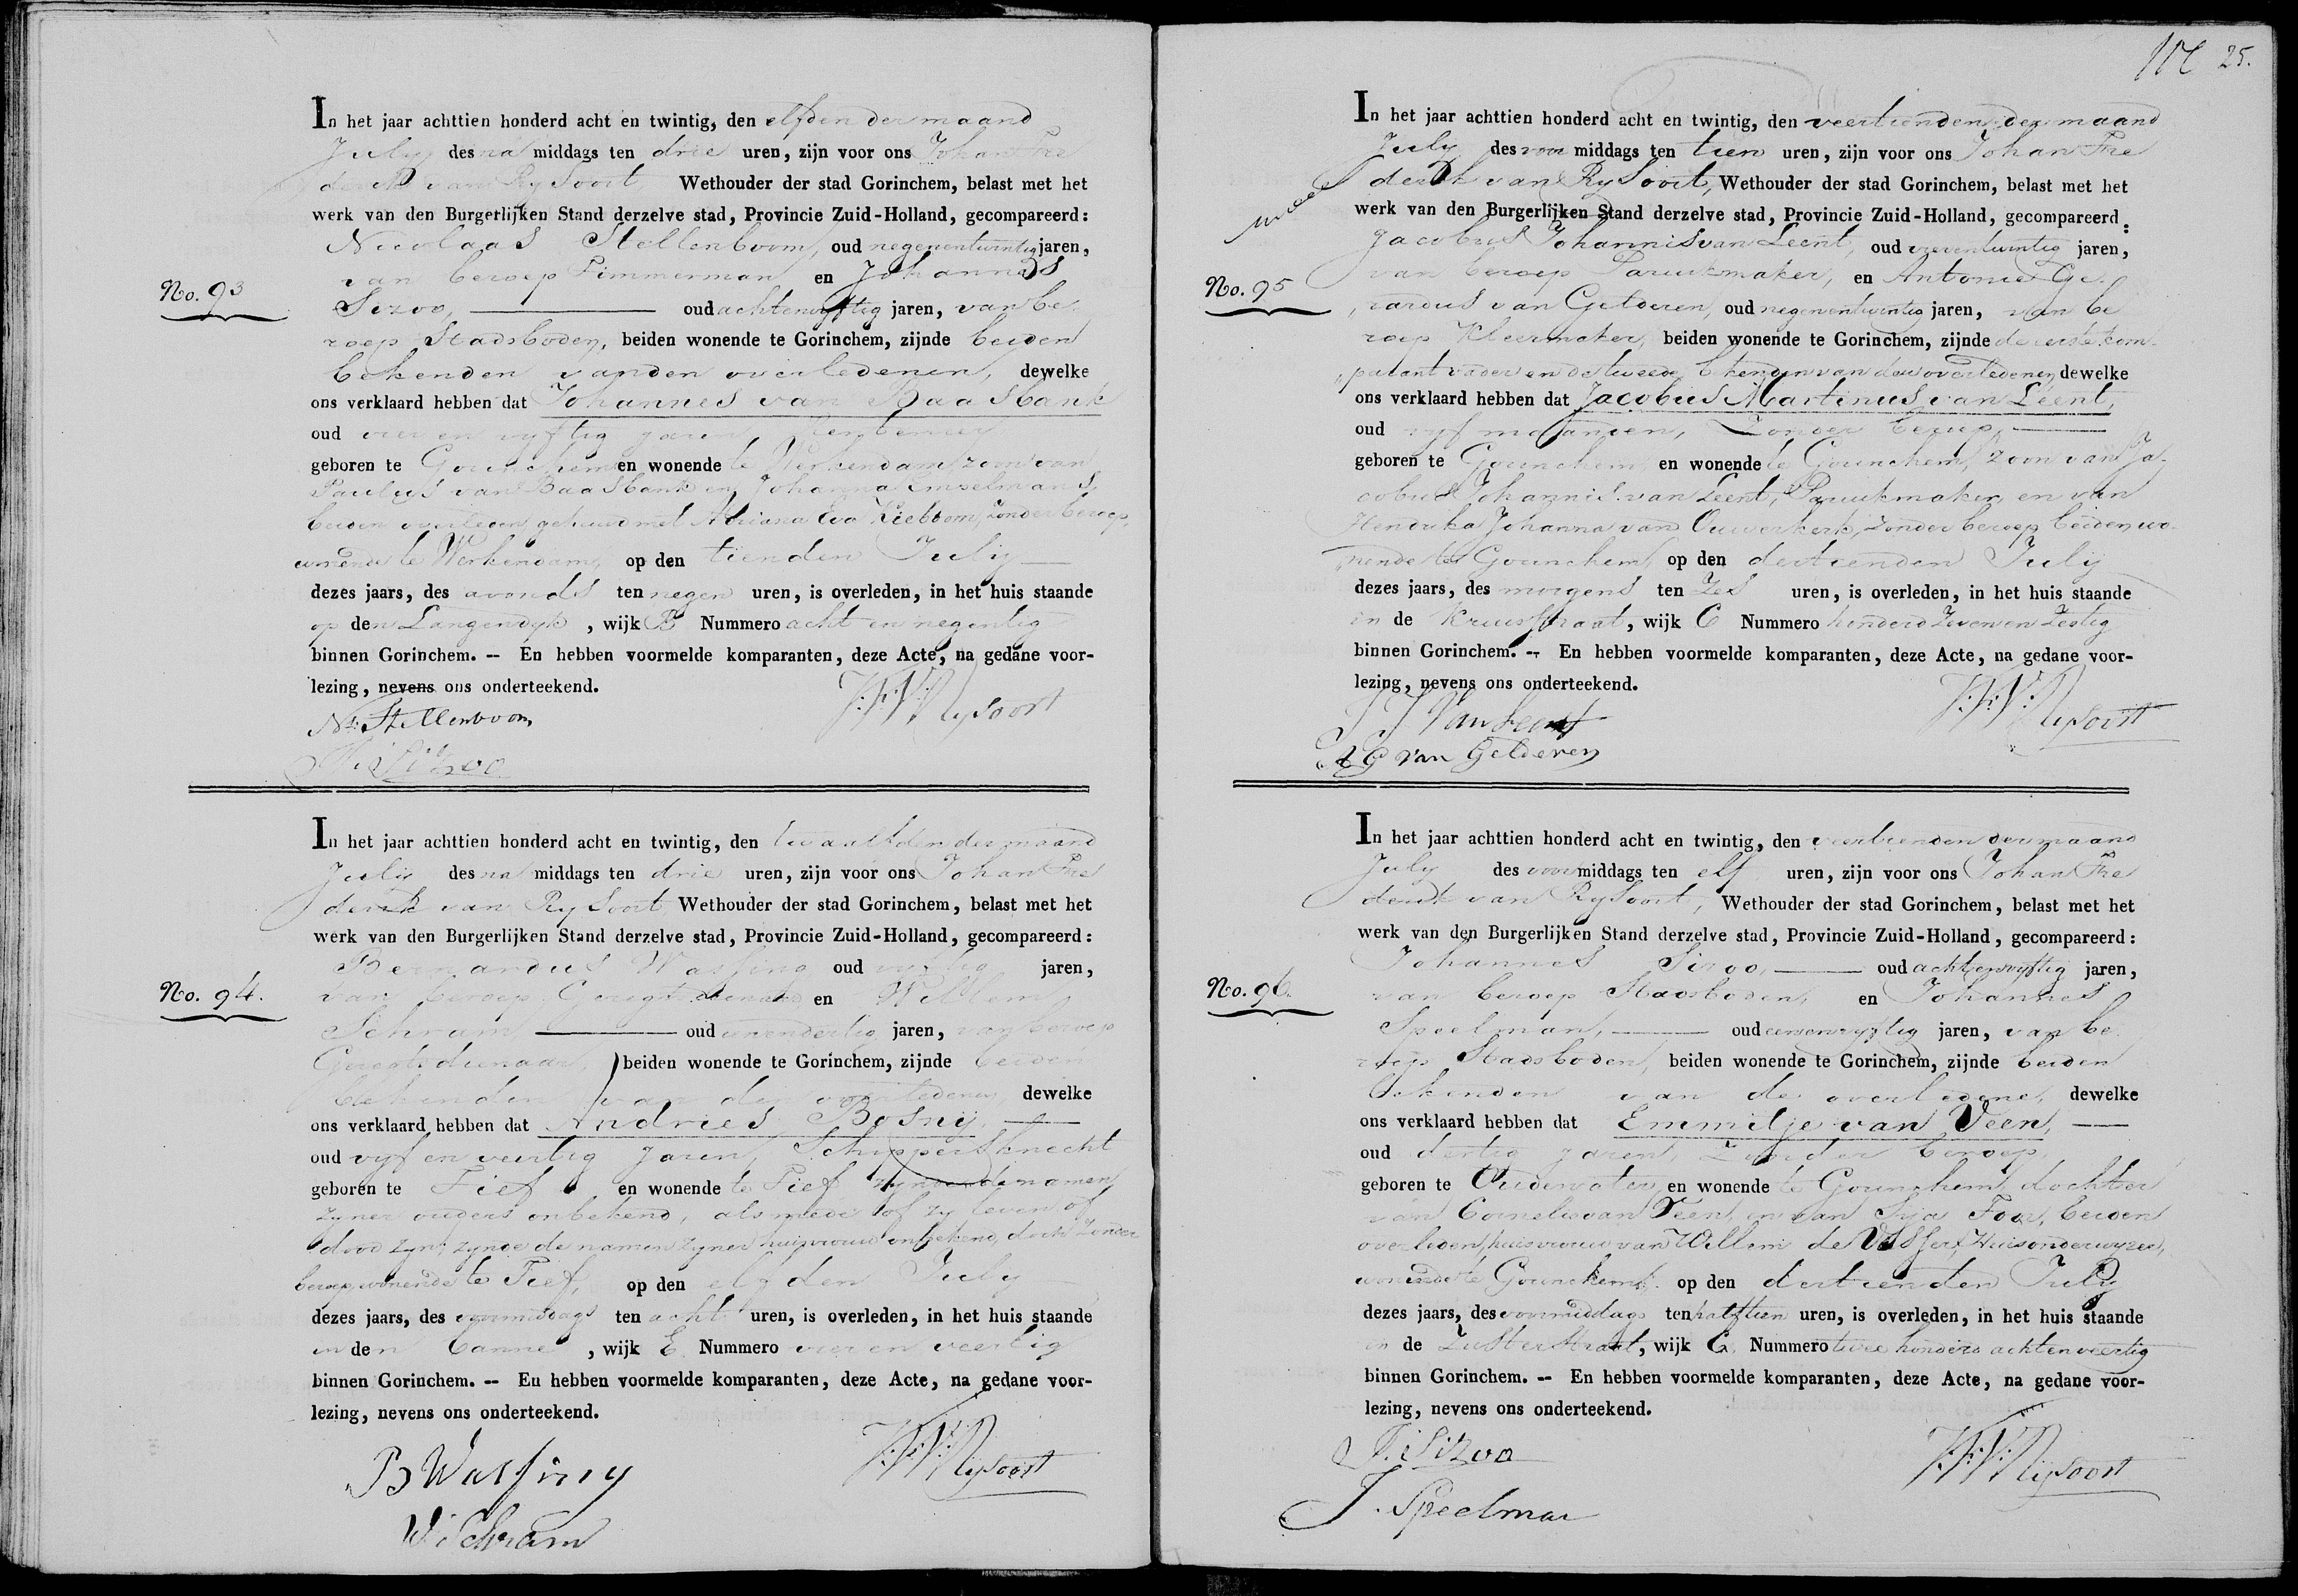 No. 93
In het jaar achttien honderd acht en twintig, den elfden der maand
July des na middags ten drie uren, zijn voor ons Johan Fre
derik van Rysoort Wethouder der stad Gorinchem, belast met het
werk van den Burgerlijken Stand derzelve stad, Provincie Zuid-Holland, gecompareerd:
Nicolaas Stellenboom, oud negenentwintig jaren,
van beroep Timmerman en Johannes
Sizoo, oud achtenvyftig jaren, van be
roep Stadsboden, beiden wonende te Gorinchem, zijnde beiden
bekenden van den overledenen, dewelke
ons verklaard hebben dat Johannes van Baasbank
oud vier en vyftig jaren
geboren te Gorinchem en wonende te Werkendam, zoon van
Paulus van Baasbank en Johanna
beiden overleden, gehuwd met Adriana Eva Kieboom, zonder beroep,
wonende te Werkendam, op den tienden July
dezes jaars, des avonds ten negen uren, is overleden, in het huis staande
op den Langendyk, wijk B Nummero acht en negentig
binnen Gorinchem. -- En hebben voormelde komparanten, deze Acte, na gedane voor-
lezing, nevens ons onderteekend.
Ns. Stellenboom
J. F. V. Rysoort
J: Sizoo
No. 94.
In het jaar achttien honderd acht en twintig, den twaalfden der maand
July des na middags ten drie uren, zijn voor ons Johan Fre
derik van Rysoort Wethouder der stad Gorinchem, belast met het
werk van den Burgerlijken Stand derzelve stad, Provincie Zuid-Holland, gecompareerd:
Bernardus Wassing oud vyftig jaren,
van beroep Geregtsdienaar en Willem
Schram oud eenendertig jaren, van beroep
Geregtsdienaar, beiden wonende te Gorinchem, zijnde beiden
bekenden van den overledenen dewelke
ons verklaard hebben dat Andries Bosny,
oud vyf en veertig jaren, Schippersknecht
geboren te Tiel en wonende te Tiel zynde de namen
zyner ouders onbekend, alsmede of zy leven of
dood zyn, zynde de namen zyner huisvrouw onbekend, doch zonder
beroep, wonende te Tiel, op den elfden July
dezes jaars, des voormiddags ten acht uren, is overleden, in het huis staande
in den Canne, wijk E Nummero vier en veertig
binnen Gorinchem. -- En hebben voormelde komparanten, deze Acte, na gedane voor-
lezing, nevens ons onderteekend.
B Wassing
J. F. V. Rysoort
W: Schram
25.
No. 95
In het jaar achttien honderd acht en twintig, den veertienden der maand
July des voor middags ten tien uren, zijn voor ons Johan Fre
derik van Rysoort, Wethouder der stad Gorinchem, belast met het
werk van den Burgerlijken Stand derzelve stad, Provincie Zuid-Holland, gecompareerd:
Jacobus Johannis van Leent, oud vierentwintig jaren,
van beroep Paruikmaker, en Antonie Ge-
rardus van Gelderen, oud negenentwintig jaren, van be
roep Kleermaker, beiden wonende te Gorinchem, zijnde de eerste kom-
parant vader en de tweede bekenden van den overledenen, dewelke
ons verklaard hebben dat Jacobus Martinus van Leent,
oud vyf maanden, zonder beroep,
geboren te Gorinchem, en wonende te Gorinchem, zoon van Ja-
cobus Johannis van Leent, Paruikmaker en van
Hendrika Johanna van Ouwerkerk, zonder beroep, beiden wo-
nende te Gorinchem, op den dertienden July
dezes jaars, des morgens ten zes uren, is overleden, in het huis staande
in de Kruisstraat, wijk C Nummero honderd zeven en zestig
binnen Gorinchem. -- En hebben voormelde komparanten, deze Acte, na gedane voor-
lezing, nevens ons onderteekend.
J J Van Leent
J. F. V. Rysoort
A G van Gelderen
No. 96.
In het jaar achttien honderd acht en twintig, den veertienden der maand
July des voor middags ten elf uren, zijn voor ons Johan Fre
derik van Rysoort, Wethouder der stad Gorinchem, belast met het
werk van den Burgerlijken Stand derzelve stad, Provincie Zuid-Holland, gecompareerd:
Johannes Sizoo, oud achtenvyftig jaren,
van beroep Stadsboden, en Johannes
Speelman, oud eenenvyftig jaren, van be
roep Stadsboden, beiden wonende te Gorinchem, zijnde beiden
bekenden van de overledene, dewelke
ons verklaard hebben dat Emmilje van Veen,
oud dertig jaren, zonder beroep,
geboren te Oudewater, en wonende te Gorinchem, dochter
van Cornelis van Veen, en van beiden
overleden, huisvrouw van Willem de Visser, Huisonderwyzer,
wonende te Gorinchem, op den dertienden July
dezes jaars, des voormiddags ten half tien uren, is overleden, in het huis staande
in de Zusterstraat, wijk C Nummero twee honderd achtenveertig
binnen Gorinchem. -- En hebben voormelde komparanten, deze Acte, na gedane voor-
lezing, nevens ons onderteekend.
J: Sizoo
J. F. V. Rysoort
J. Speelman